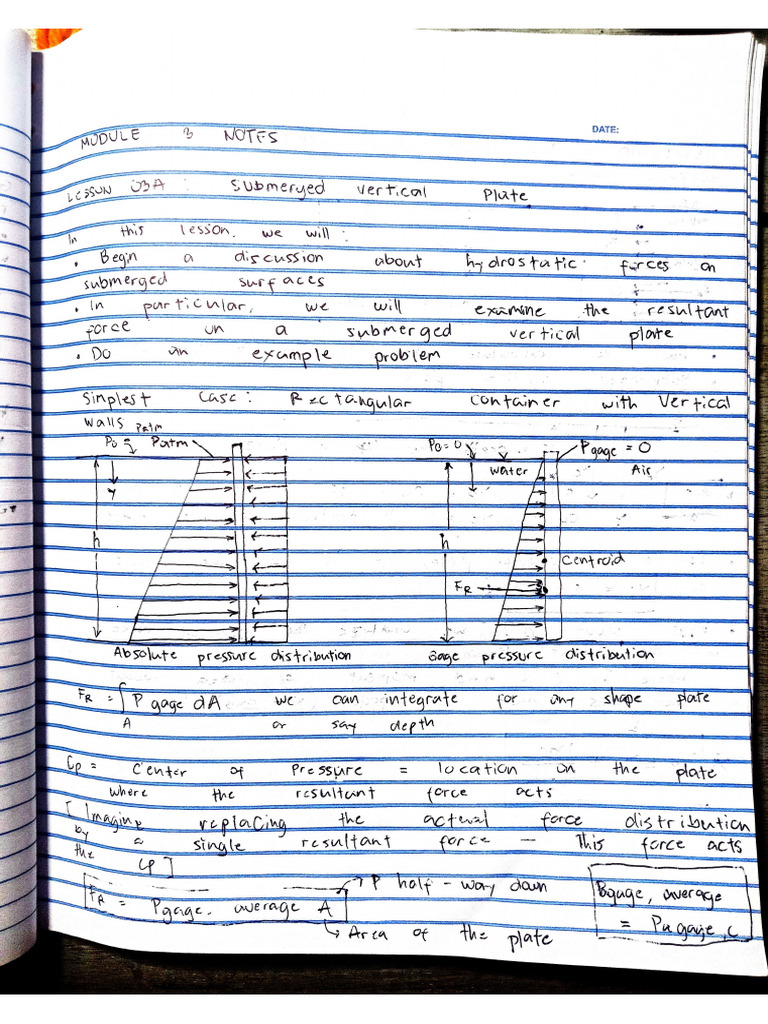 DATE:
MODULE 3 NOTES
LESSON 03A : Submerged vertical Plate
In this lesson, we will :
• Begin a discussion about hydrostatic forces on
submerged surfaces
• In particular, we will examine the resultant
force on a submerged vertical plate
• Do an example problem
Simplest Case: Rectangular container with Vertical
walls
P0 = Patm
Patm
P0 = 0
Pgage = 0
water
Air
y
h
h
Centroid
FR
Absolute pressure distribution
Gage pressure distribution
FR = ∫ P gage dA we can integrate for any shape plate
A or say depth
Cp = Center of Pressure = location on the plate
where the resultant force acts
[ Imagine replacing the actual force distribution
by a single resultant force — This force acts
the CP ]
P half - way down
FR = Pgage, average A
Area of the plate
Pgage, average
= Pgage, c